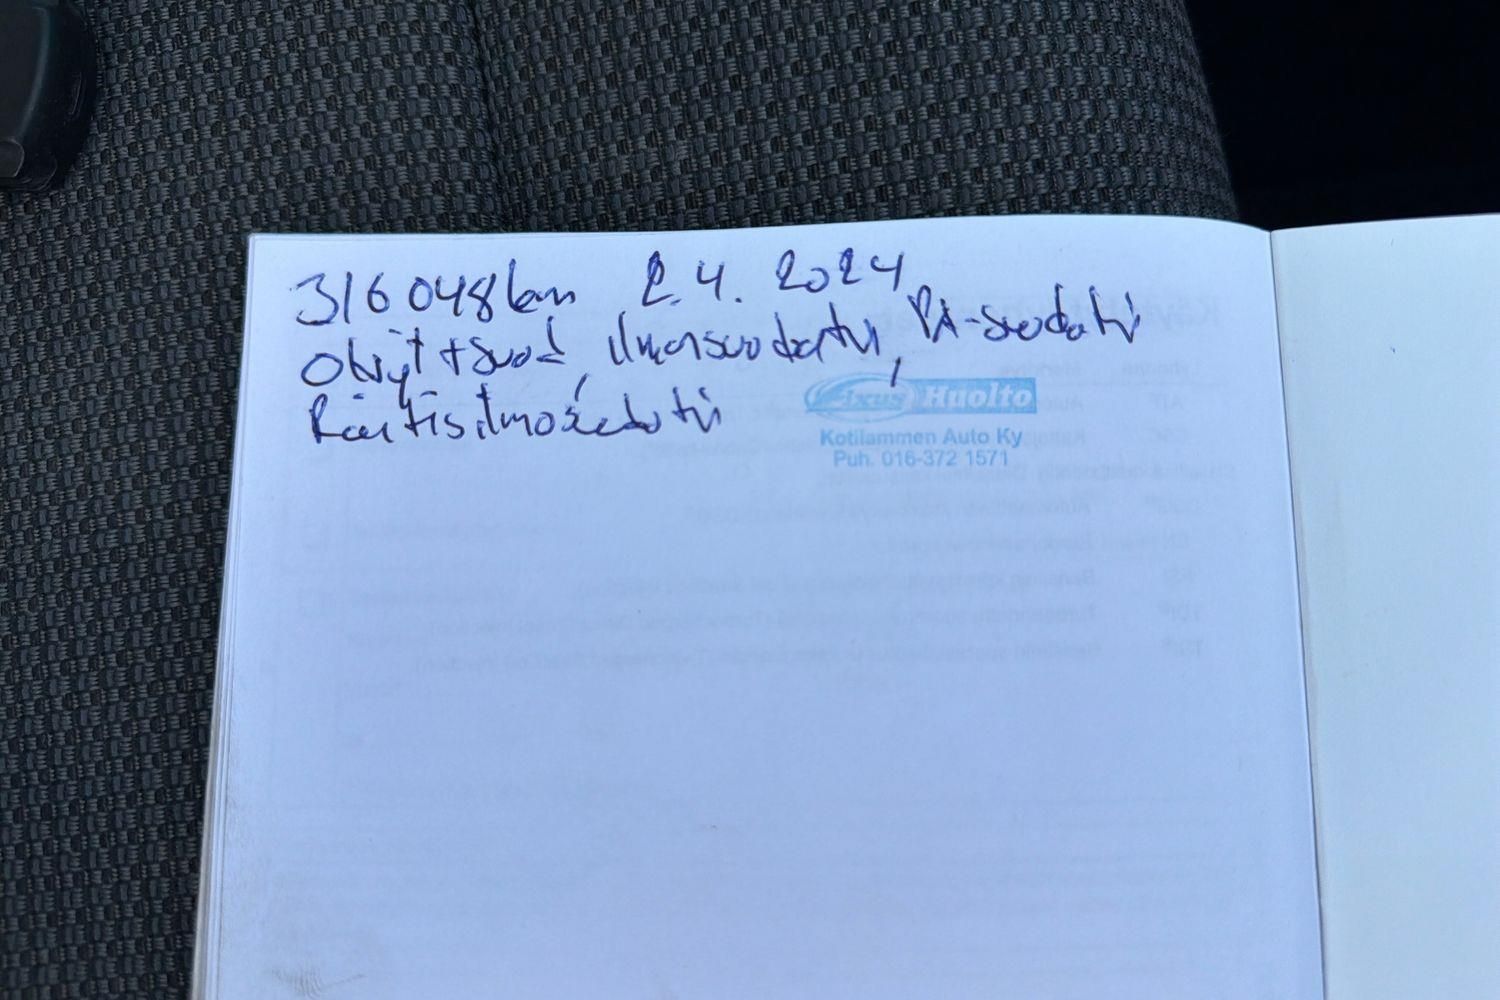 316 048 km 2.4.2024
Öljyt + suod, ilmansuodatin, PA-suodatin
Raitisilmasuodatin
Fixus Huolto
Kotilammen Auto Ky
Puh. 016-372 1571